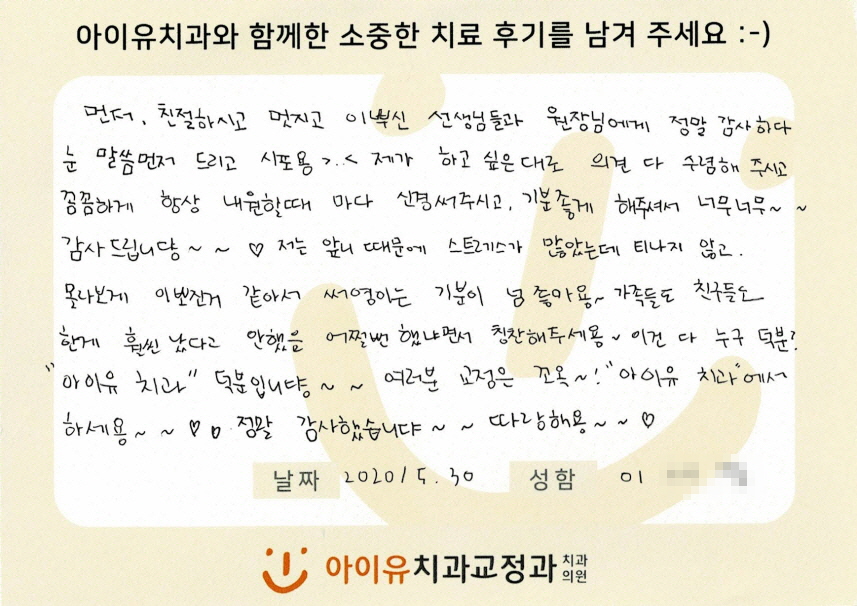 아이유치과와 함께한 소중한 치료 후기를 남겨 주세요 :-)
먼저, 친절하시고 멋지고 이쁘신 선생님들과 원장님에게 정말 감사하다
눈 말씀먼저 드리고 시포용 >.< 제가 하고 싶은대로 의견 다 수렴해 주시고
꼼꼼하게 항상 내원할때 마다 신경써주시고, 기분좋게 해주셔서 너무너무~ ~
감사드립니댱~ ~ ♡ 저는 앞니 때문에 스트레스가 많았는데 티나지 않고.
몰라보게 이뽀진거 같아서 써영이는 기분이 넘 좋아용~ 가족들도 친구들도
한게 훨씬 났다고 안했음 어쩔번 했냐면서 칭찬해주세용~ 이건 다 누구 덕분?
"아이유 치과" 덕분입니댱~ ~ 여러분 교정은 꼬옥~! "아이유 치과"에서
하세용~ ~ ♡ 정말 감사했습니댜~ ~ 따랑해용~ ~ ♡
날짜 2020/5.30 성함 이
아이유치과교정과 치과의원